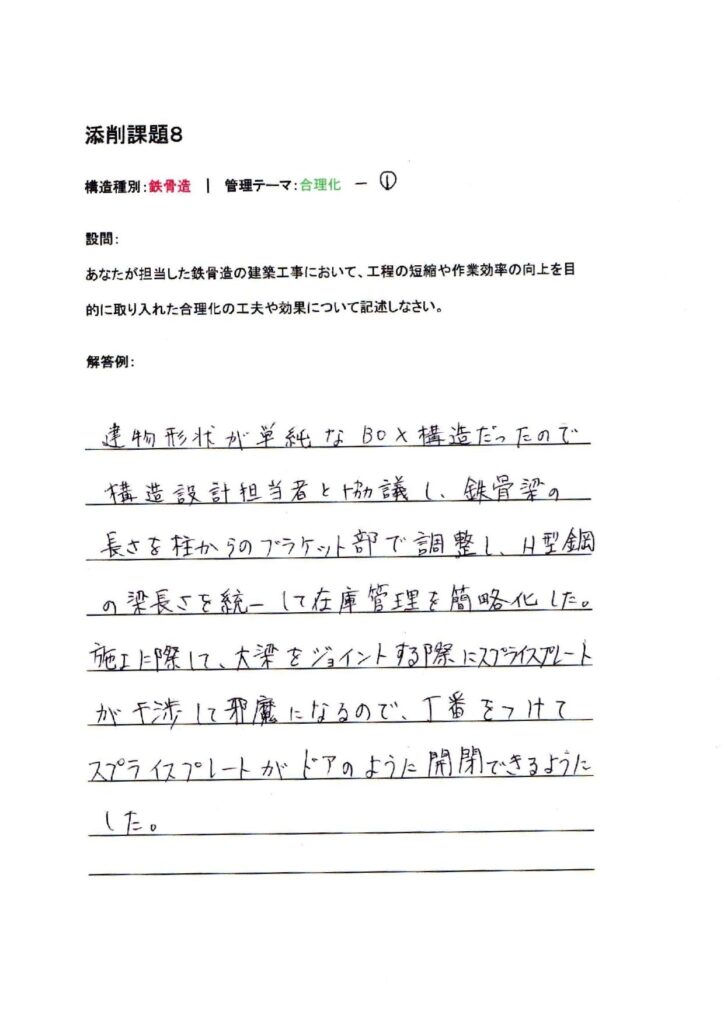 添削課題8
構造種別:鉄骨造 | 管理テーマ:合理化 － ①
設問:
あなたが担当した鉄骨造の建築工事において、工程の短縮や作業効率の向上を目
的に取り入れた合理化の工夫や効果について記述しなさい。
解答例:
建物形状が単純なBOX構造だったので
構造設計担当者と協議し、鉄骨梁の
長さを柱からのブラケット部で調整し、H型鋼
の梁長さを統一して在庫管理を簡略化した。
施工に際して、大梁をジョイントする際にスプライスプレート
が干渉して邪魔になるので、丁番をつけて
スプライスプレートがドアのように開閉できるように
した。